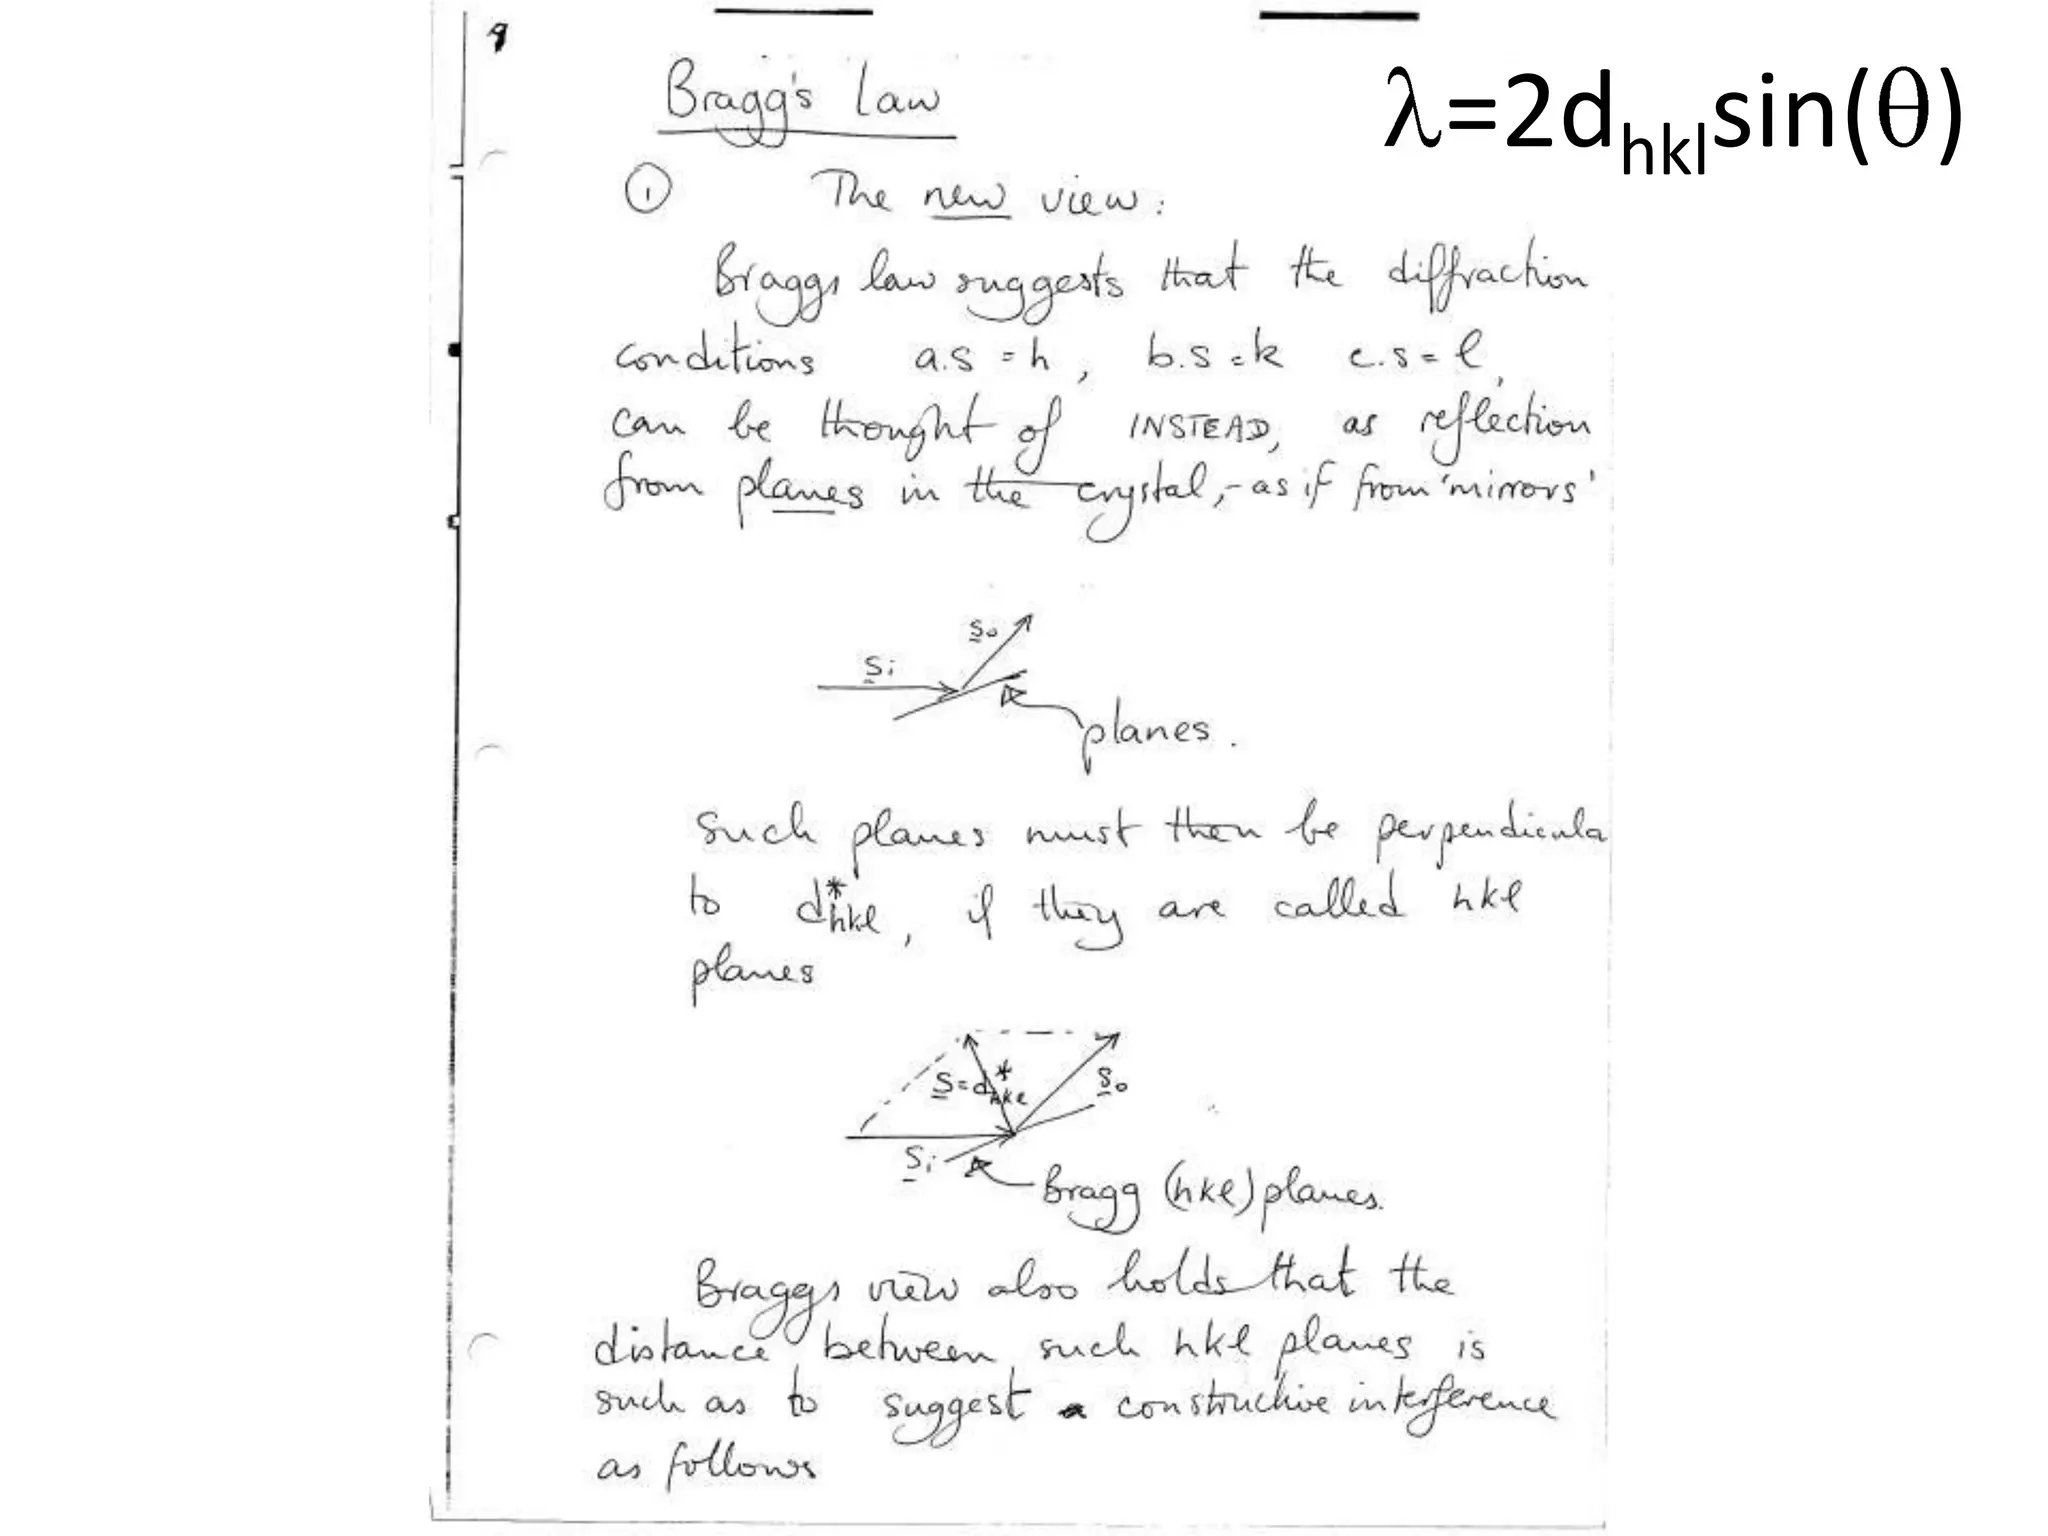 9
Bragg's Law
λ=2dhklsin(θ)
① The new view:
Braggs law suggests that the diffraction
conditions a.s = h, b.s = k c.s = l,
can be thought of INSTEAD, as reflection
from planes in the crystal, - as if from 'mirrors'
So
Si
planes.
Such planes must then be perpendicula
to d*hkl, if they are called hkl
planes
S = d*hkl
So
Si
Bragg (hkl) planes.
Braggs view also holds that the
distance between such hkl planes is
such as to suggest a constructive interference
as follows